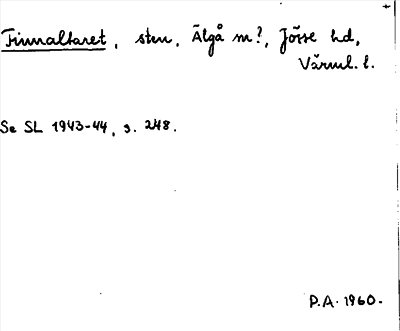 Finnaltaret, sten, Älgå m?, Jösse hd,
Värml. l.
Se SL 1943-44, s. 248.
P.A. 1960.